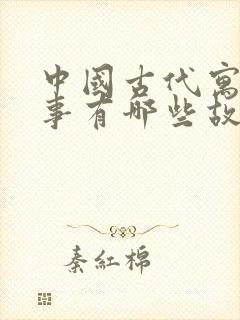 中國古代寓
事有哪些故
秦紅棉